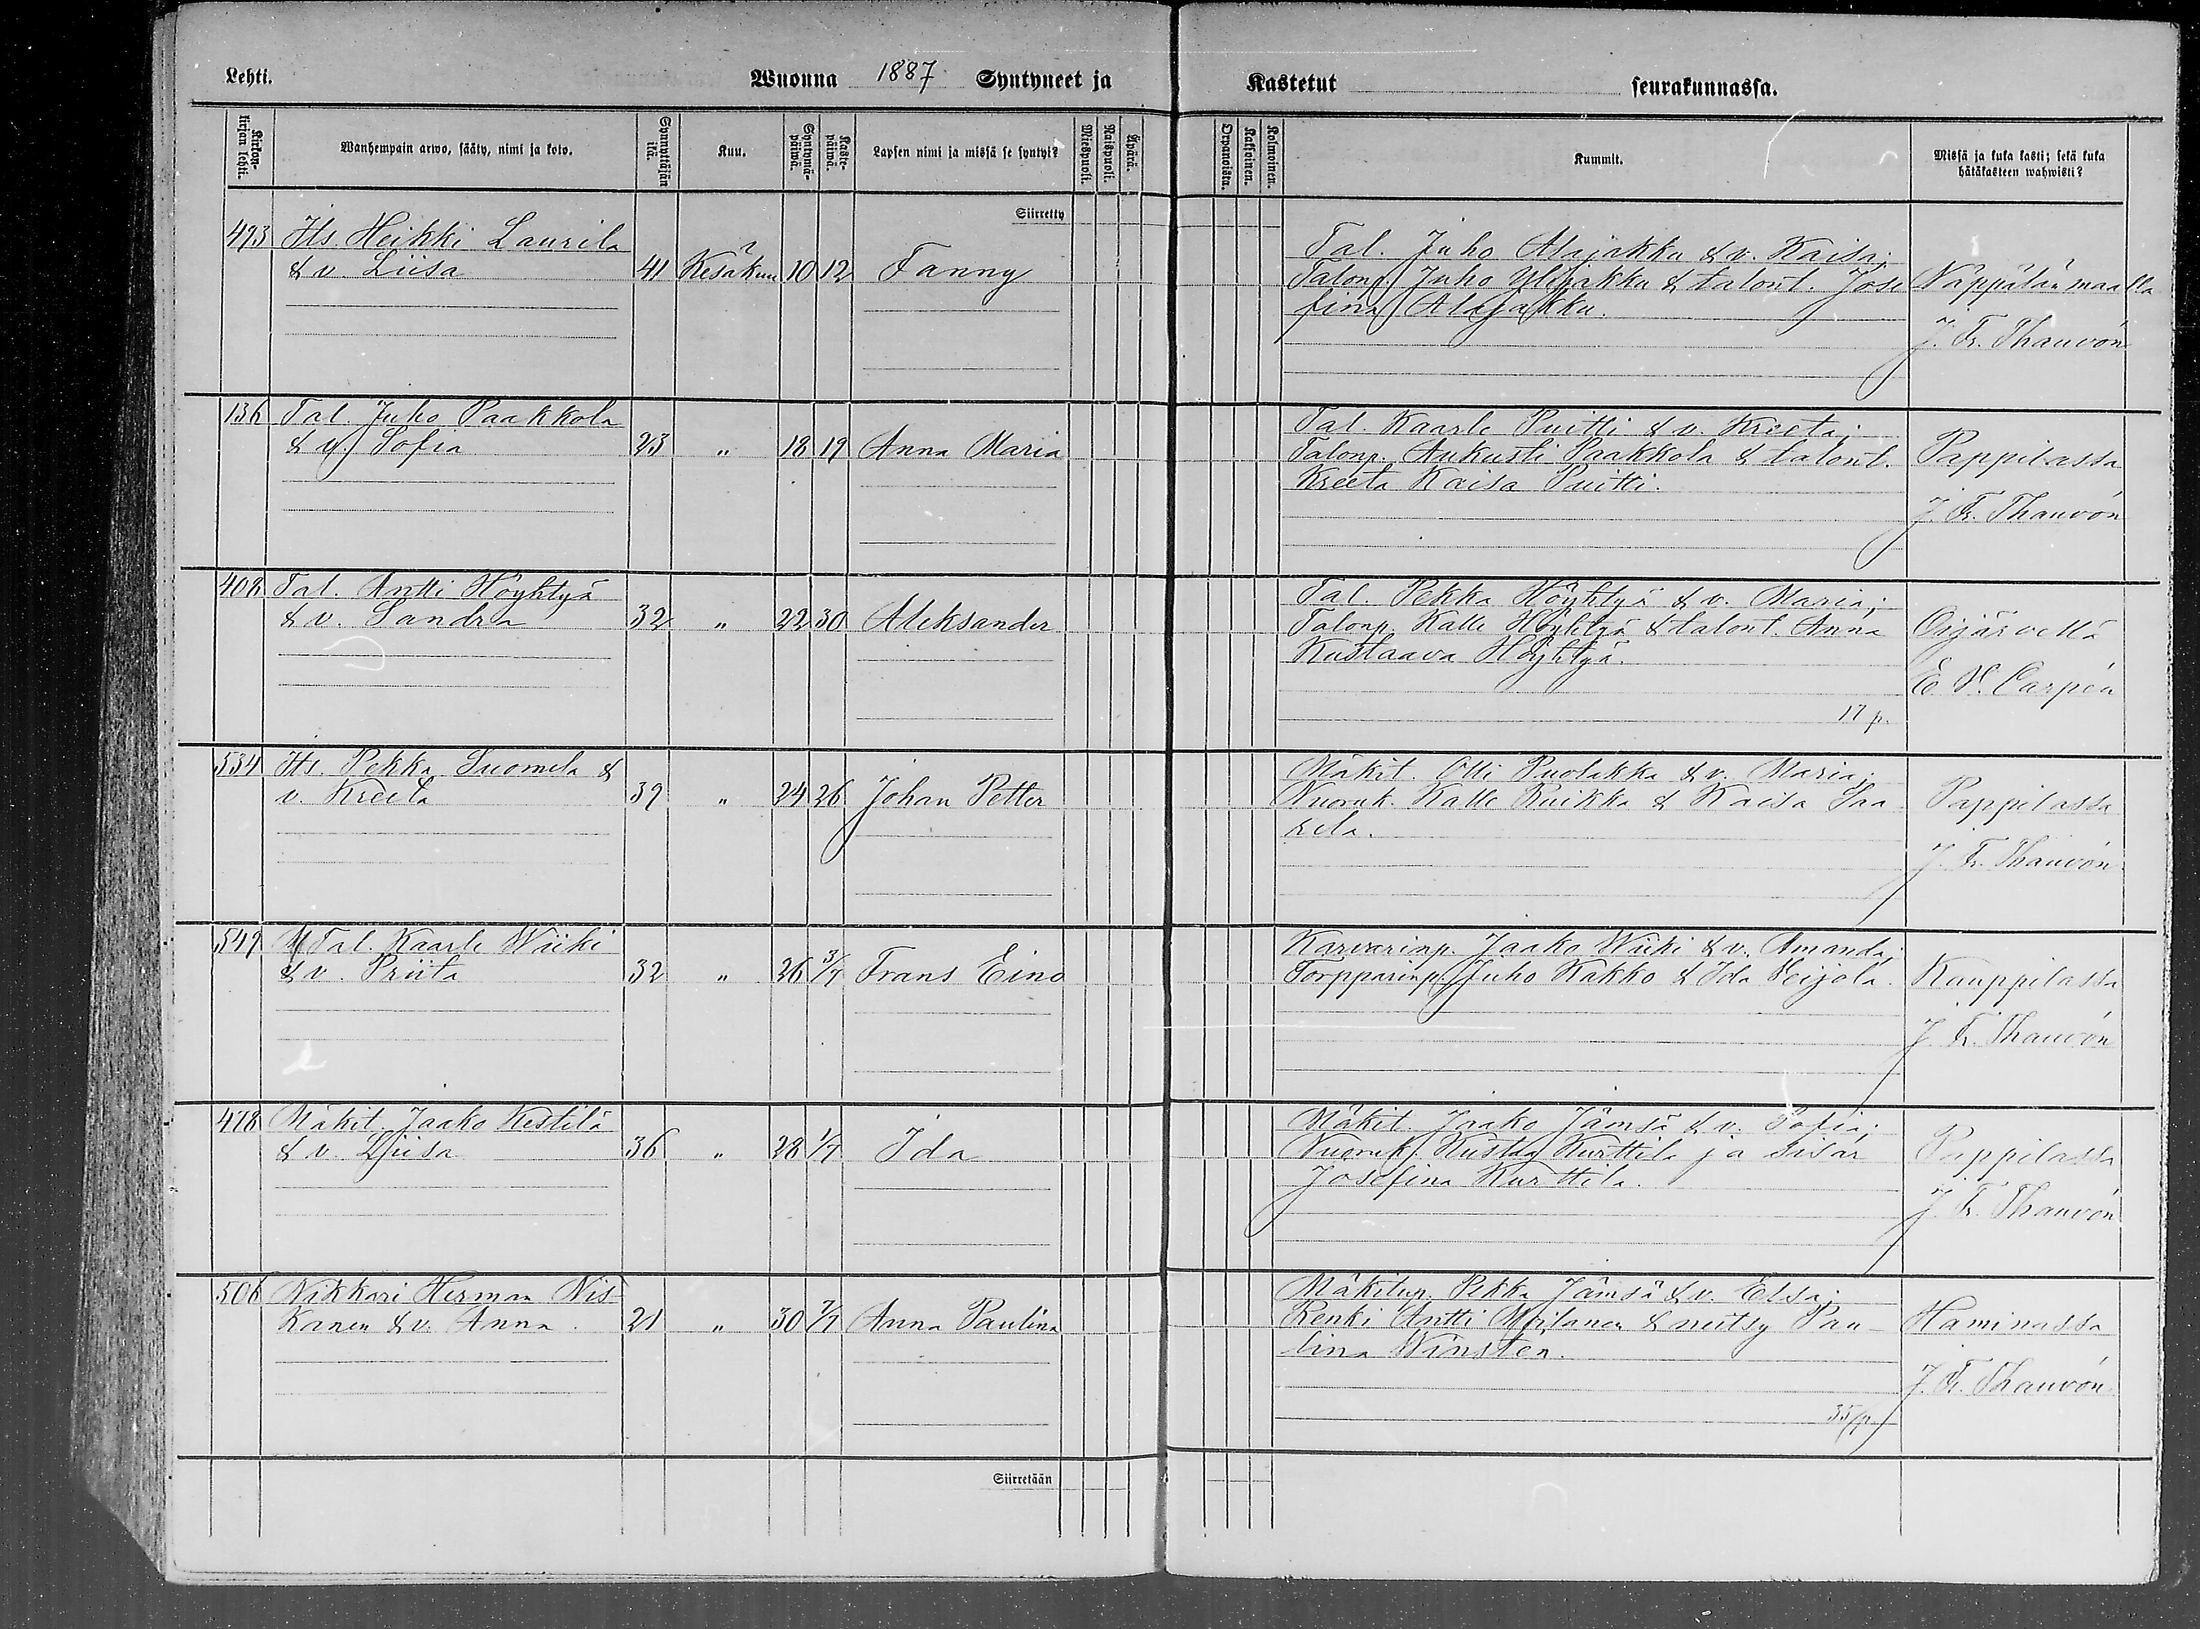 Lehti. Wuonna 1887 Syntyneet ja Kastetut seurakunnassa.
Kirkon-kirjan lehti. Wanhempain arwo, sääty, nimi ja koto. Synnyttäjän ikä. Kuu. Syntymä-päiwä. Kaste-päiwä. Lapsen nimi ja missä se syntyi? Miespuoli. Naispuoli. Äpärä. Orpanoista. Kaksoinen. Kolmoinen. Kummit. Missä ja kuka kasti; sekä kuka hätäkasteen wahwisti?
Siirretty
493 Its. Heikki Laurila
& v. Liisa 41 Kesäkuu 10 12 Fanny
Tal. Juho Alajakku & v. Kaisa;
Talonp. Juho Ylijakku & talont. Jose
fina Alajakku.
Näppälänmaalla
J. Fr. Thauvón
136 Tal. Juho Paakkola
& v. Sofia 23 " 18 19 Anna Maria
Tal. Kaarle Puitti & v. Kreeta;
Talonp. Aukusti Paakkola & talont.
Kreeta Kaisa Puitti.
Pappilassa
J. Fr. Thauvón
408 Tal. Antti Höyhtyä
& v. Sandra 32 " 22 30 Aleksander
Tal. Pekka Höyhtyä & v. Maria;
Talonp. Kalle Höyhtyä & talont. Anna
Kustaava Höyhtyä.
17 p.
Oijärvellä
E. V. Carpén
534 Its. Pekka Suomela &
v. Kreeta 39 " 24 26 Johan Petter
Mäkit. Olli Puolakka & v. Maria;
Nuoruk. Kalle Ruikka & Kaisa Saa
rela.
Pappilassa
J. Fr. Thauvón
549 Tal. Kaarle Wiiki
& v. Priita 32 " 26 3/7 Frans Eino
Karvarinp. Jaako Wiiki & v. Amanda;
Torpparinp. Juho Kakko & Ida Seijola.
Kauppilassa
J. Fr. Thauvón
478 Mäkit. Jaako Kestilä
& v. Liisa 36 " 28 1/7 Ida
Mäkit. Jaako Jämsä & v. Sofia;
Nuoruk. Kusta Kurttila ja sisar
Josefina Kurttila.
Pappilassa
J. Fr. Thauvón
506 Nikkari Herman Nis-
kanen & v. Anna. 21 " 30 7/7 Anna Paulina
Mäkitup. Pekka Jämsä & v. Elsa;
Renki Antti Moilanen & neitsy Pau-
lina Winsten.
35 p.
Haminassa
J. Fr. Thauvón
Siirretään